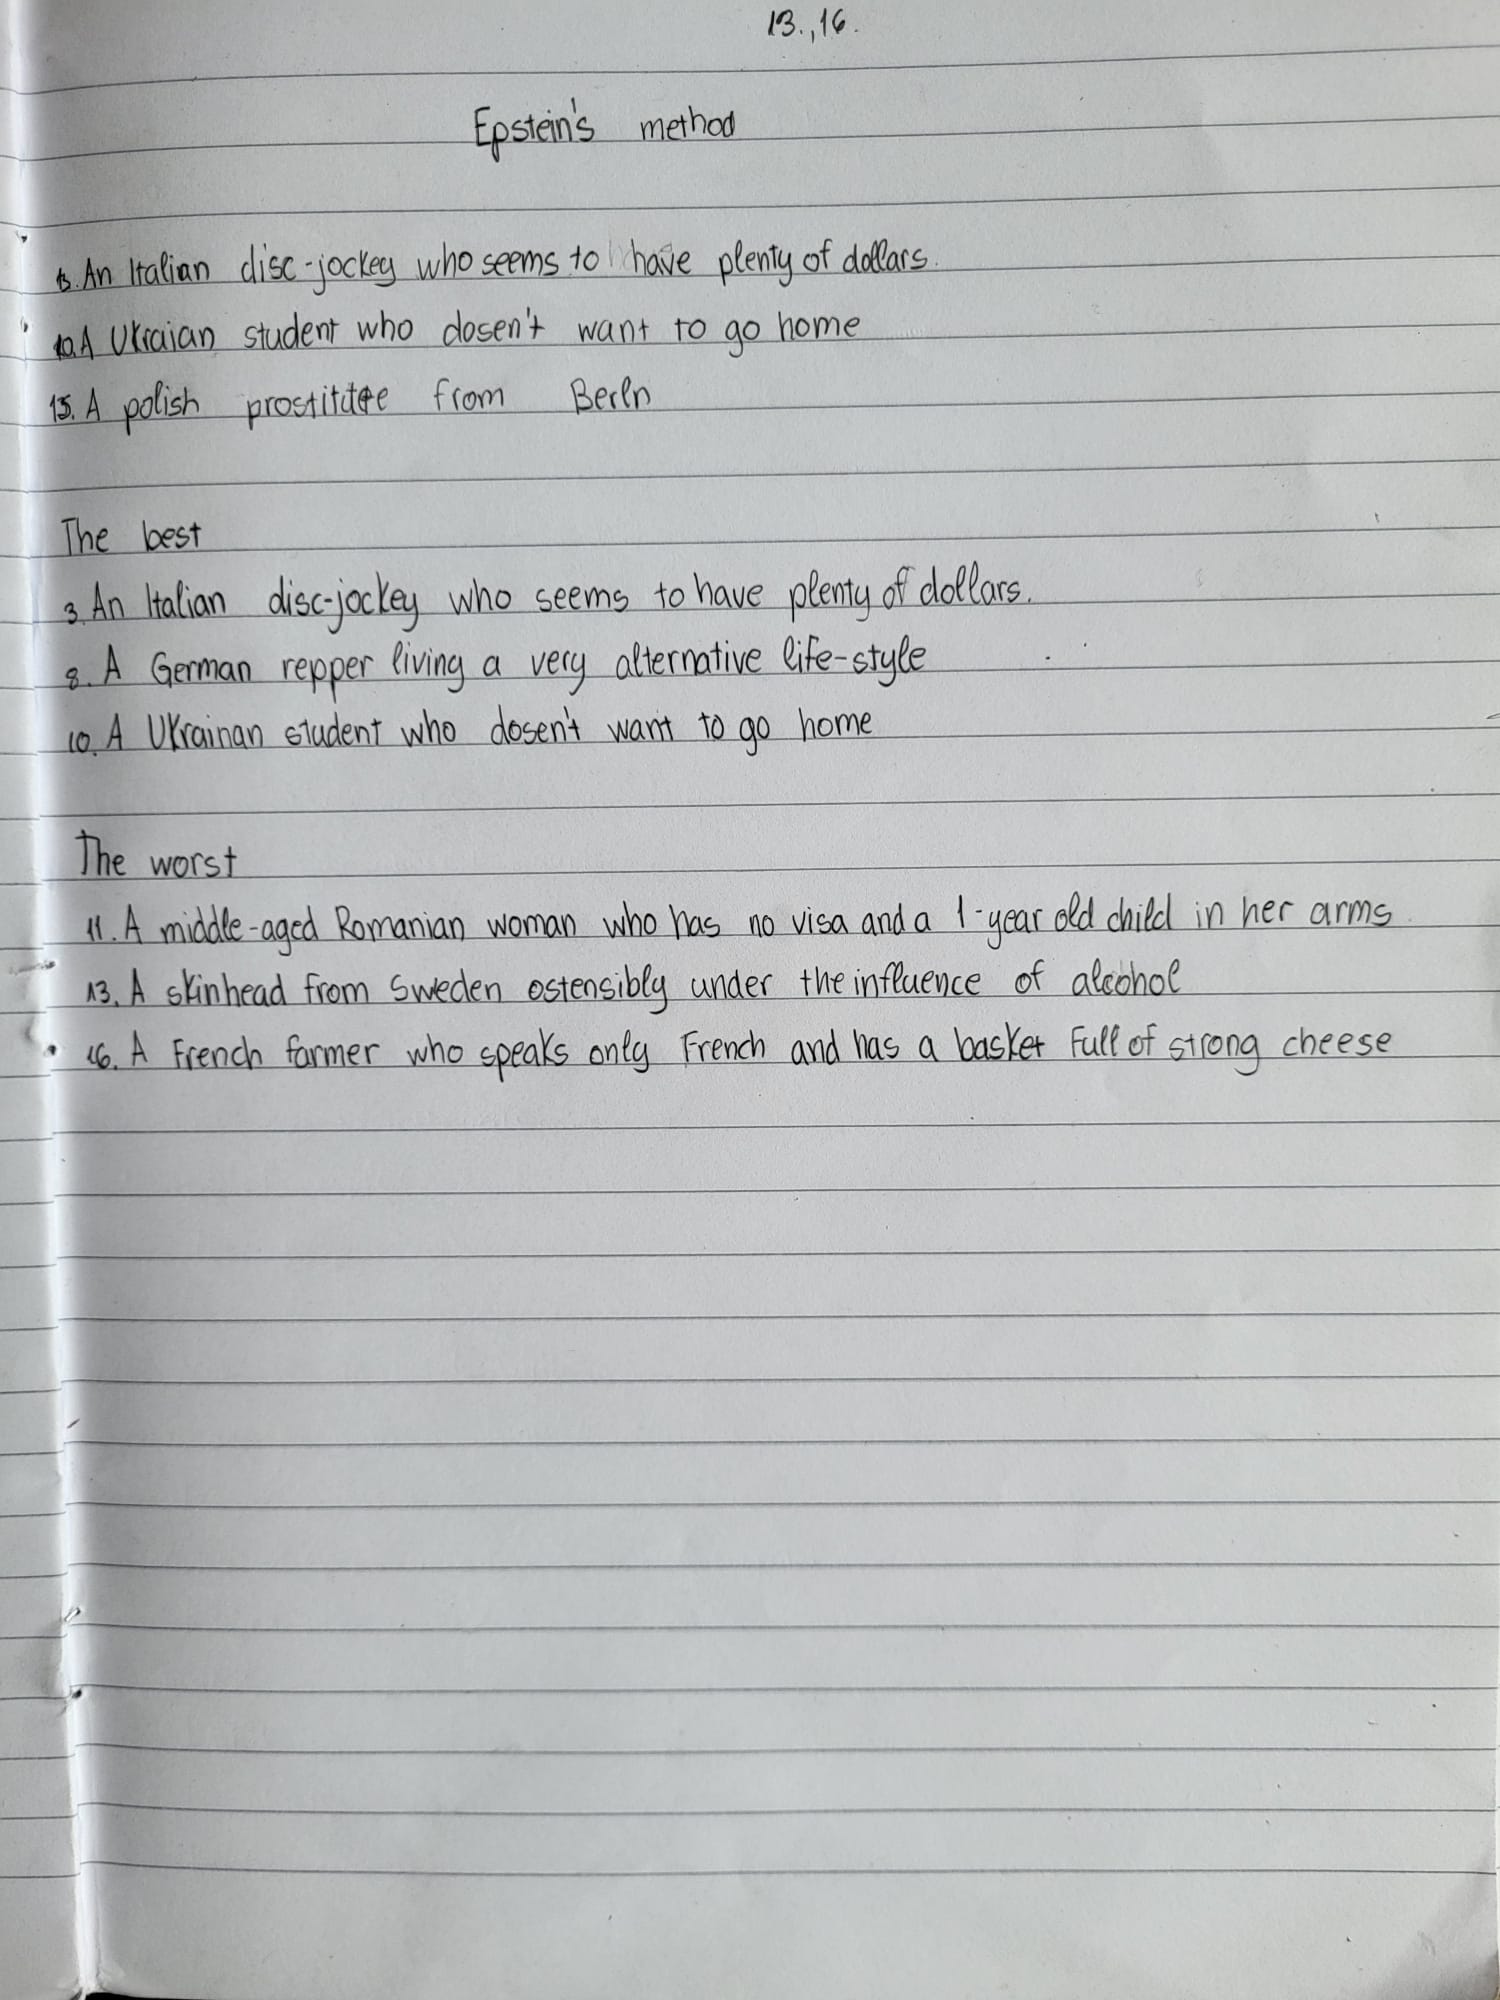 13.,16.
Epstein's method
3. An Italian disc-jockey who seems to have plenty of dollars.
10. A Ukraian student who dosen't want to go home
15. A polish prostitutee from Berln
The best
3. An Italian disc-jockey who seems to have plenty of dollars.
8. A German repper living a very alternative life-style
10. A Ukrainan student who dosen't want to go home
The worst
11. A middle-aged Romanian woman who has no visa and a 1-year old child in her arms
13. A skinhead from Sweden ostensibly under the influence of alcohol
16. A French farmer who speaks only French and has a basket full of strong cheese